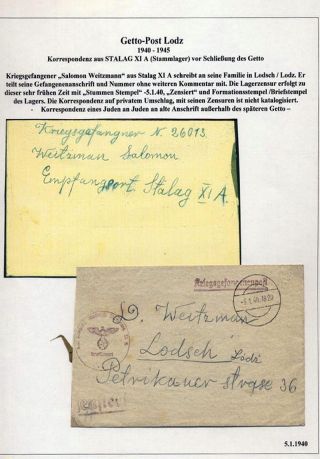 Getto-Post Lodz
1940 - 1945
Korrespondenz aus STALAG XI A (Stammlager) vor Schließung des Getto
Kriegsgefangener „Salomon Weitzmann" aus Stalag XI A schreibt an seine Familie in Lodsch / Lodz. Er
teilt seine Gefangenenanschrift und Nummer ohne weiteren Kommentar mit. Die Lagerzensur erfolgt zu
dieser sehr frühen Zeit mit „Stummen Stempel" -5.1.40, „Zensiert" und Formationsstempel /Briefstempel
des Lagers. Die Korrespondenz auf privatem Umschlag, mit seinen Zensuren ist nicht katalogisiert.
- Korrespondenz eines Juden an Juden an alte Anschrift außerhalb des späteren Getto –
Kriegsgefangner N 26013.
Weitzman Salomon
Empfangsort. Stalag XI A
Kriegsgefangenenpost
-5.1.40.1820
D. Weitzman
Lodsch Lodz
Petrikauer strase 36
5.1.1940